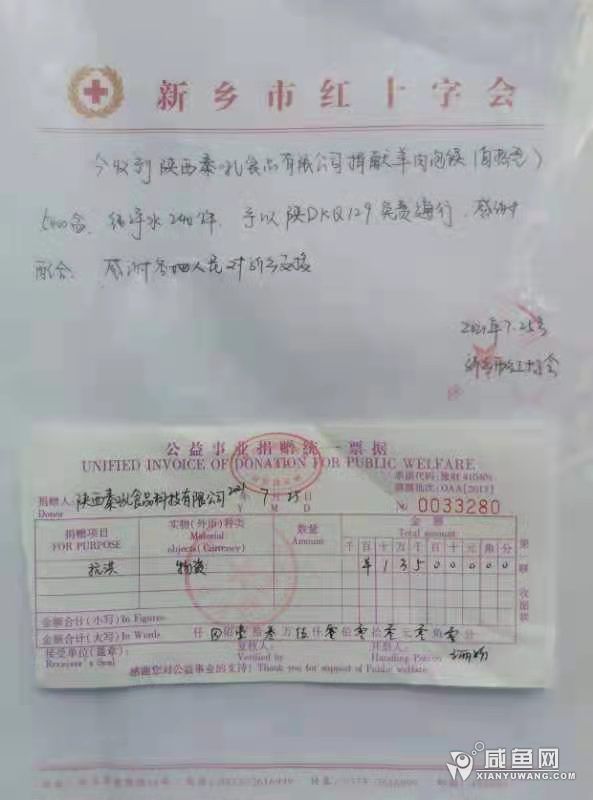 新乡市红十字会
今收到陕西秦乳食品有限公司捐献羊肉泡馍(自热包)
500盒、纯净水240件、予以陕DKQ129免费通行,感谢
配合,感谢各地人民对新乡支援
2021年7.25号
新乡市红十字会
公益事业捐赠统一票据
UNIFIED INVOICE OF DONATION FOR PUBLIC WELFARE
捐赠人: 陕西秦乳食品科技有限公司 2021年7月25日
Donor Y M D
№ 0033280
捐赠项目 实物(外币)种类 数量 金额
FOR PURPOSE Material objects (Currency) Amount Total amount
千百十万千百十元角分
抗洪 物资 ¥135000000
金额合计(小写) In Figures
金额合计(大写) In Words 仟 佰壹拾叁万伍仟零佰零拾零元零角零分
接受单位(盖章): 复核人: 开票人:
Receiver's Seal Verified by Handling Person
感谢您对公益事业的支持! Thank you for support of Public welfare
咸鱼网
XIANYUWANG.COM